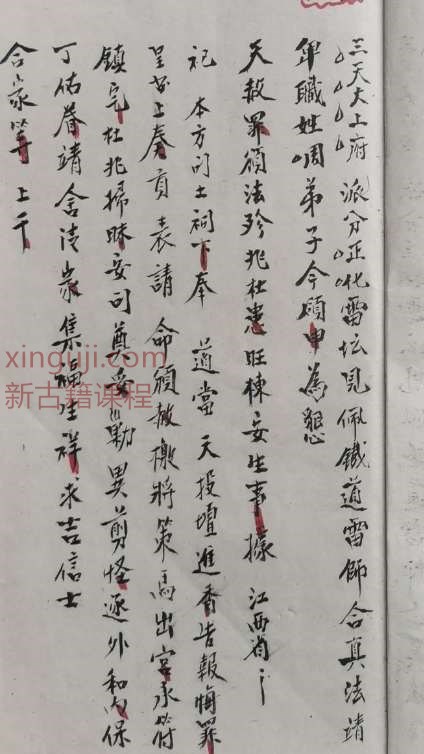 三天大上府 派分正乙雷坛見佩鐵道雷師合真法靖
卑職姓 弟子今領申為懇
天赦罪領法珍兆杜患旺棟妥生事據 江西省
祀 本方司土祠下奉 道當天投壇進香告報悔罪
呈安上奏貢表請 命頒赦檄將策馬出宮承符
鎮宅杜兆掃 妥司奠妥 勦異剪怪逐外和内保
丁佑眷靖舍清家集福生祥求吉信士
合家等上干
xinguji.com
新古籍课程